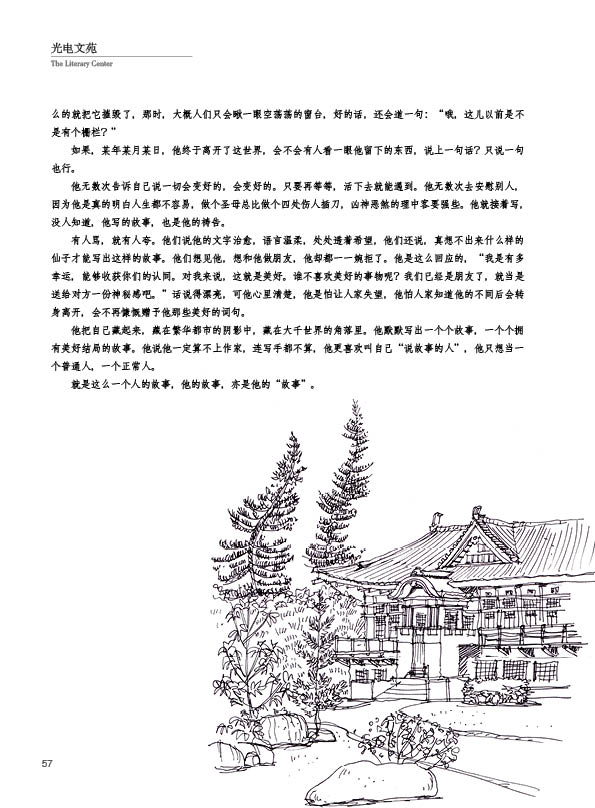 光电文苑
The Literary Center
么的就把它摧毁了，那时，大概人们只会瞅一眼空荡荡的窗台，好的话，还会道一句：“哦，这儿以前是不
是有个栅栏？”
如果，某年某月某日，他终于离开了这世界，会不会有人看一眼他留下的东西，说上一句话？只说一句
也行。
他无数次告诉自己说一切会变好的，会变好的。只要再等等，活下去就能遇到。他无数次去安慰别人，
因为他是真的明白人生都不容易，做个圣母总比做个四处伤人插刀，凶神恶煞的理中客要强些。他就接着写，
没人知道，他写的故事，也是他的祷告。
有人骂，就有人夸。他们说他的文字治愈，语言温柔，处处透着希望，他们还说，真想不出来什么样的
仙子才能写出这样的故事。他们想见他，想和他做朋友，他却都一一婉拒了。他是这么回应的，“我是有多
幸运，能够收获你们的认同。对我来说，这就是美好。谁不喜欢美好的事物呢？我们已经是朋友了，就当是
送给对方一份神秘感吧。”话说得漂亮，可他心里清楚，他是怕让人家失望，他怕人家知道他的不同后会转
身离开，会不再慷慨赠予他那些美好的词句。
他把自己藏起来，藏在繁华都市的阴影中，藏在大千世界的角落里。他默默写出一个个故事，一个个拥
有美好结局的故事。他说他一定算不上作家，连写手都不算，他更喜欢叫自己“说故事的人”，他只想当一
个普通人，一个正常人。
就是这么一个人的故事，他的故事，亦是他的“故事”。
57